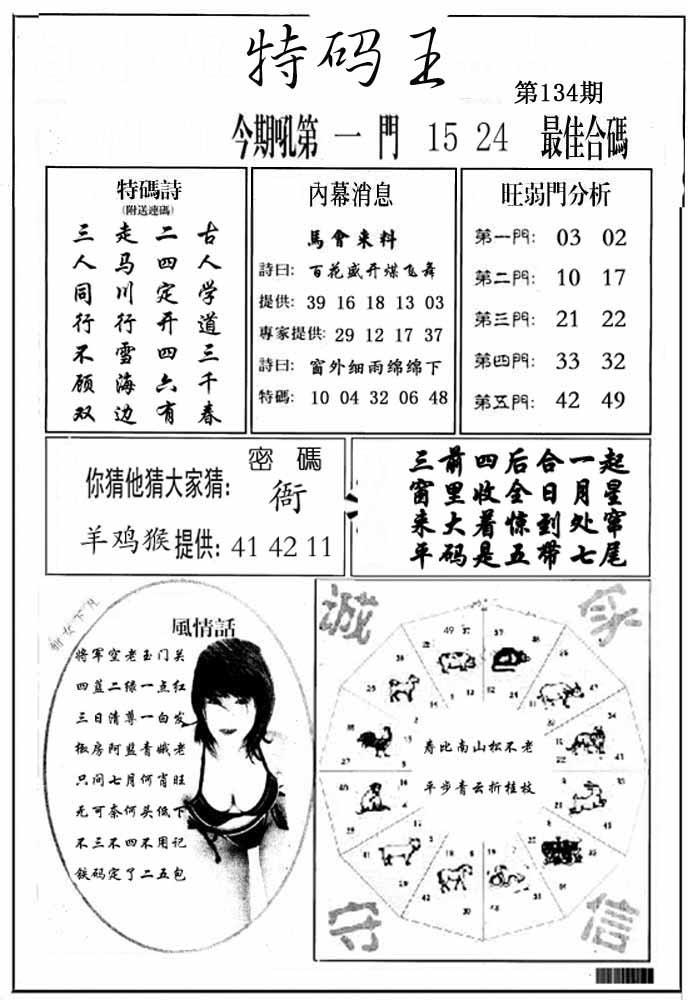 特码王
第134期
今期吼第一門 15 24 最佳合碼
特碼詩
(附送連碼)
古人学道三千春
二四定开四六有
走马川行雪海边
三人同行不顾双
內幕消息
馬會来料
詩曰: 百花盛开煤飞舞
提供: 39 16 18 13 03
專家提供: 29 12 17 37
詩曰: 窗外细雨绵绵下
特碼: 10 04 32 06 48
旺弱門分析
第一門: 03 02
第二門: 10 17
第三門: 21 22
第四門: 33 32
第五門: 42 49
密碼
你猜他猜大家猜: 衙
羊鸡猴提供: 41 42 11
三前四后合一起
窗里收全日月星
来大着惊到处窜
平码是五带七尾
風情話
将军空老玉门关
四蓝二绿一点红
三日清尊一白发
椒房阿监青娥老
只问七月何肖旺
无可奈何头低下
不三不四不用记
铁码定了二五包
诚
家
寿比南山松不老
平步青云折桂枝
守
信